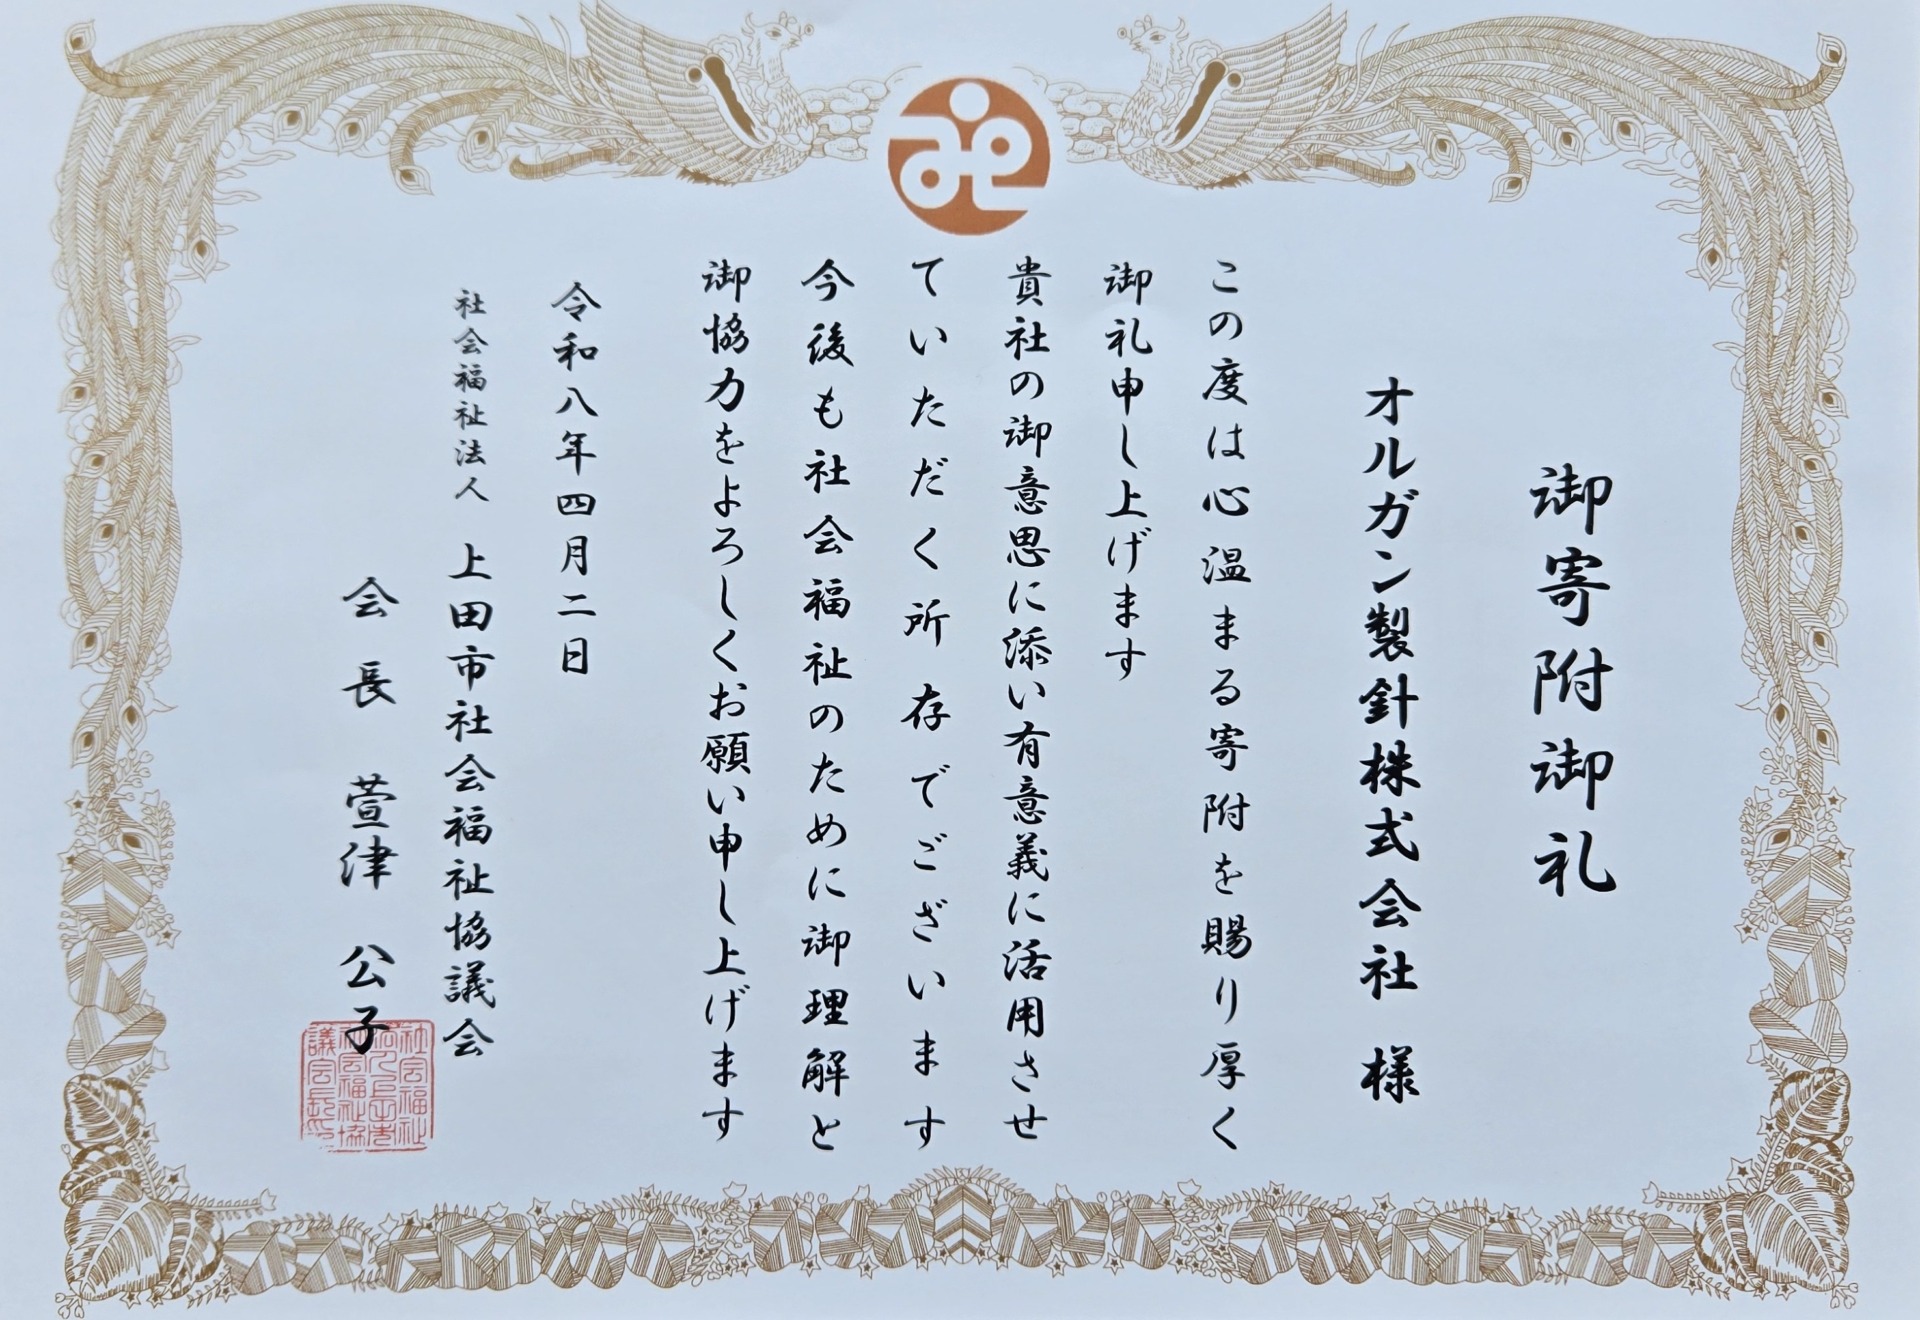 御寄附御礼
オルガン製針株式会社 様
この度は心温まる寄附を賜り厚く
御礼申し上げます
貴社の御意思に添い有意義に活用させ
ていただく所存でございます
今後も社会福祉のために御理解と
御協力をよろしくお願い申し上げます
令和八年四月二日
社会福祉法人 上田市社会福祉協議会
会長 萱津 公子